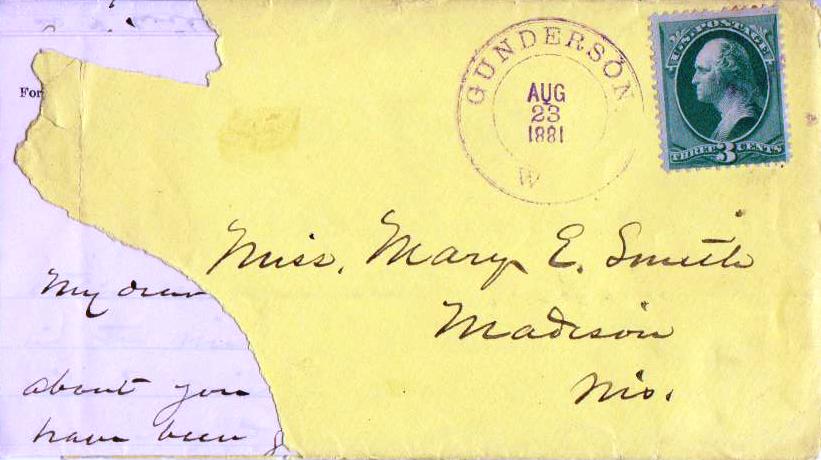 For
My dear
about you
have been
GUNDERSON
AUG
23
1881
W
U.S. POSTAGE
THREE 3 CENTS
Miss. Mary E. Smith
Madison
Wis.